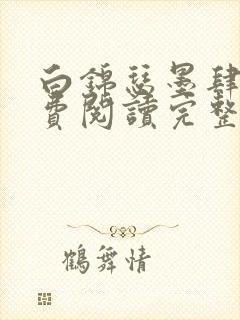 白錦瑟墨肆
費閱讀完整
鶴舞情